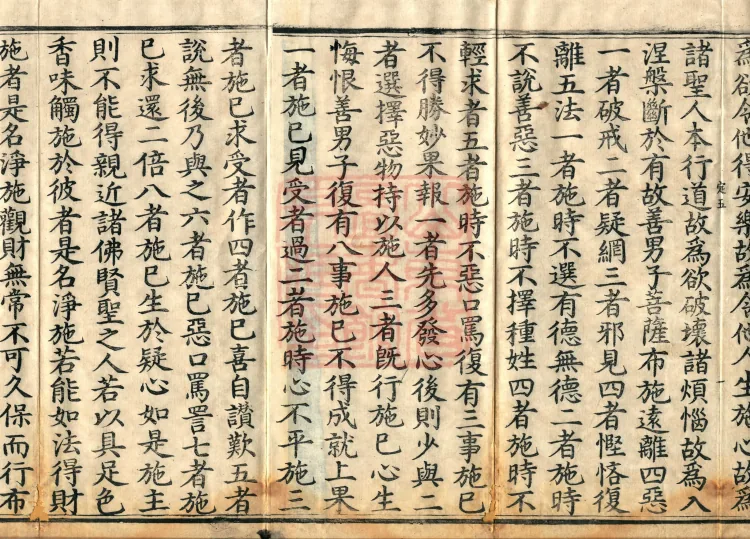 爲欲令他得安樂故爲令他人生施心故爲
諸聖人本行道故爲欲破壞諸煩惱故爲入
涅槃斷於有故善男子菩薩布施遠離四惡
一者破戒二者疑網三者邪見四者慳悋復
離五法一者施時不選有德無德二者施時
不說善惡三者施時不擇種姓四者施時不
輕求者五者施時不惡口罵復有三事施已
不得勝妙果報一者先多發心後則少與二
者選擇惡物持以施人三者旣行施已心生
悔恨善男子復有八事施已不得成就上果
一者施已見受者過二者施時心不平施三
者施已求受者作四者施已喜自讃歎五者
說無後乃與之六者施已惡口罵詈七者施
已求還二倍八者施已生於疑心如是施主
則不能得親近諸佛賢聖之人若以具足色
香味觸施於彼者是名淨施若能如法得財
施者是名淨施觀財無常不可久保而行布